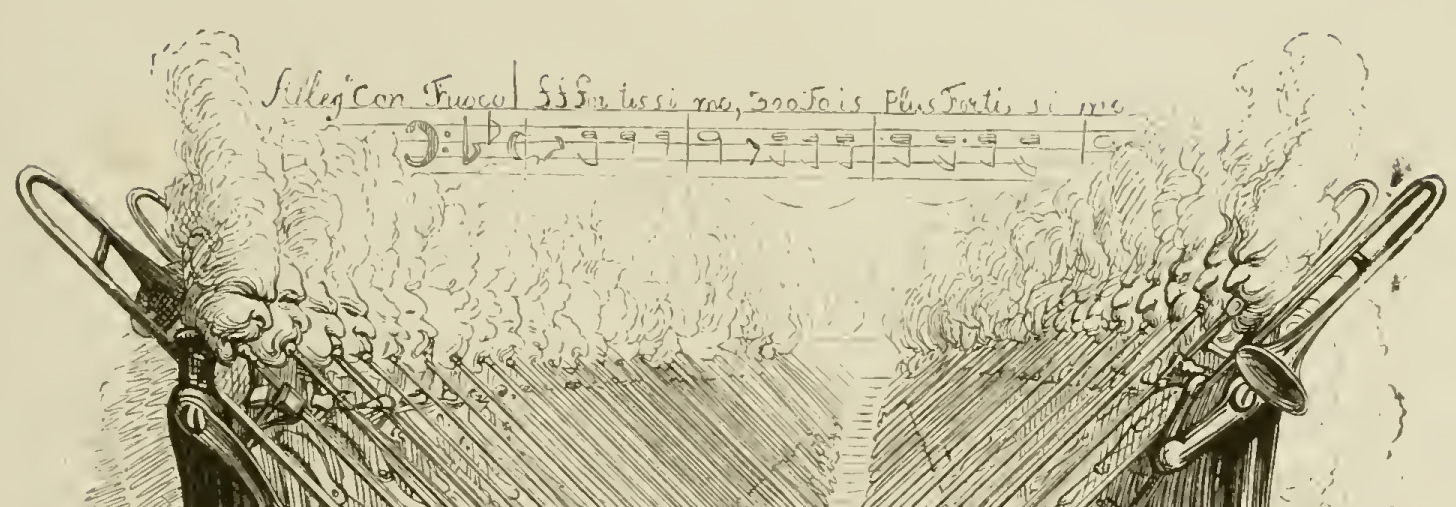 Alleg° Con Fuoco fff fortissi mo, 300 Fois Plus Forti s si mo